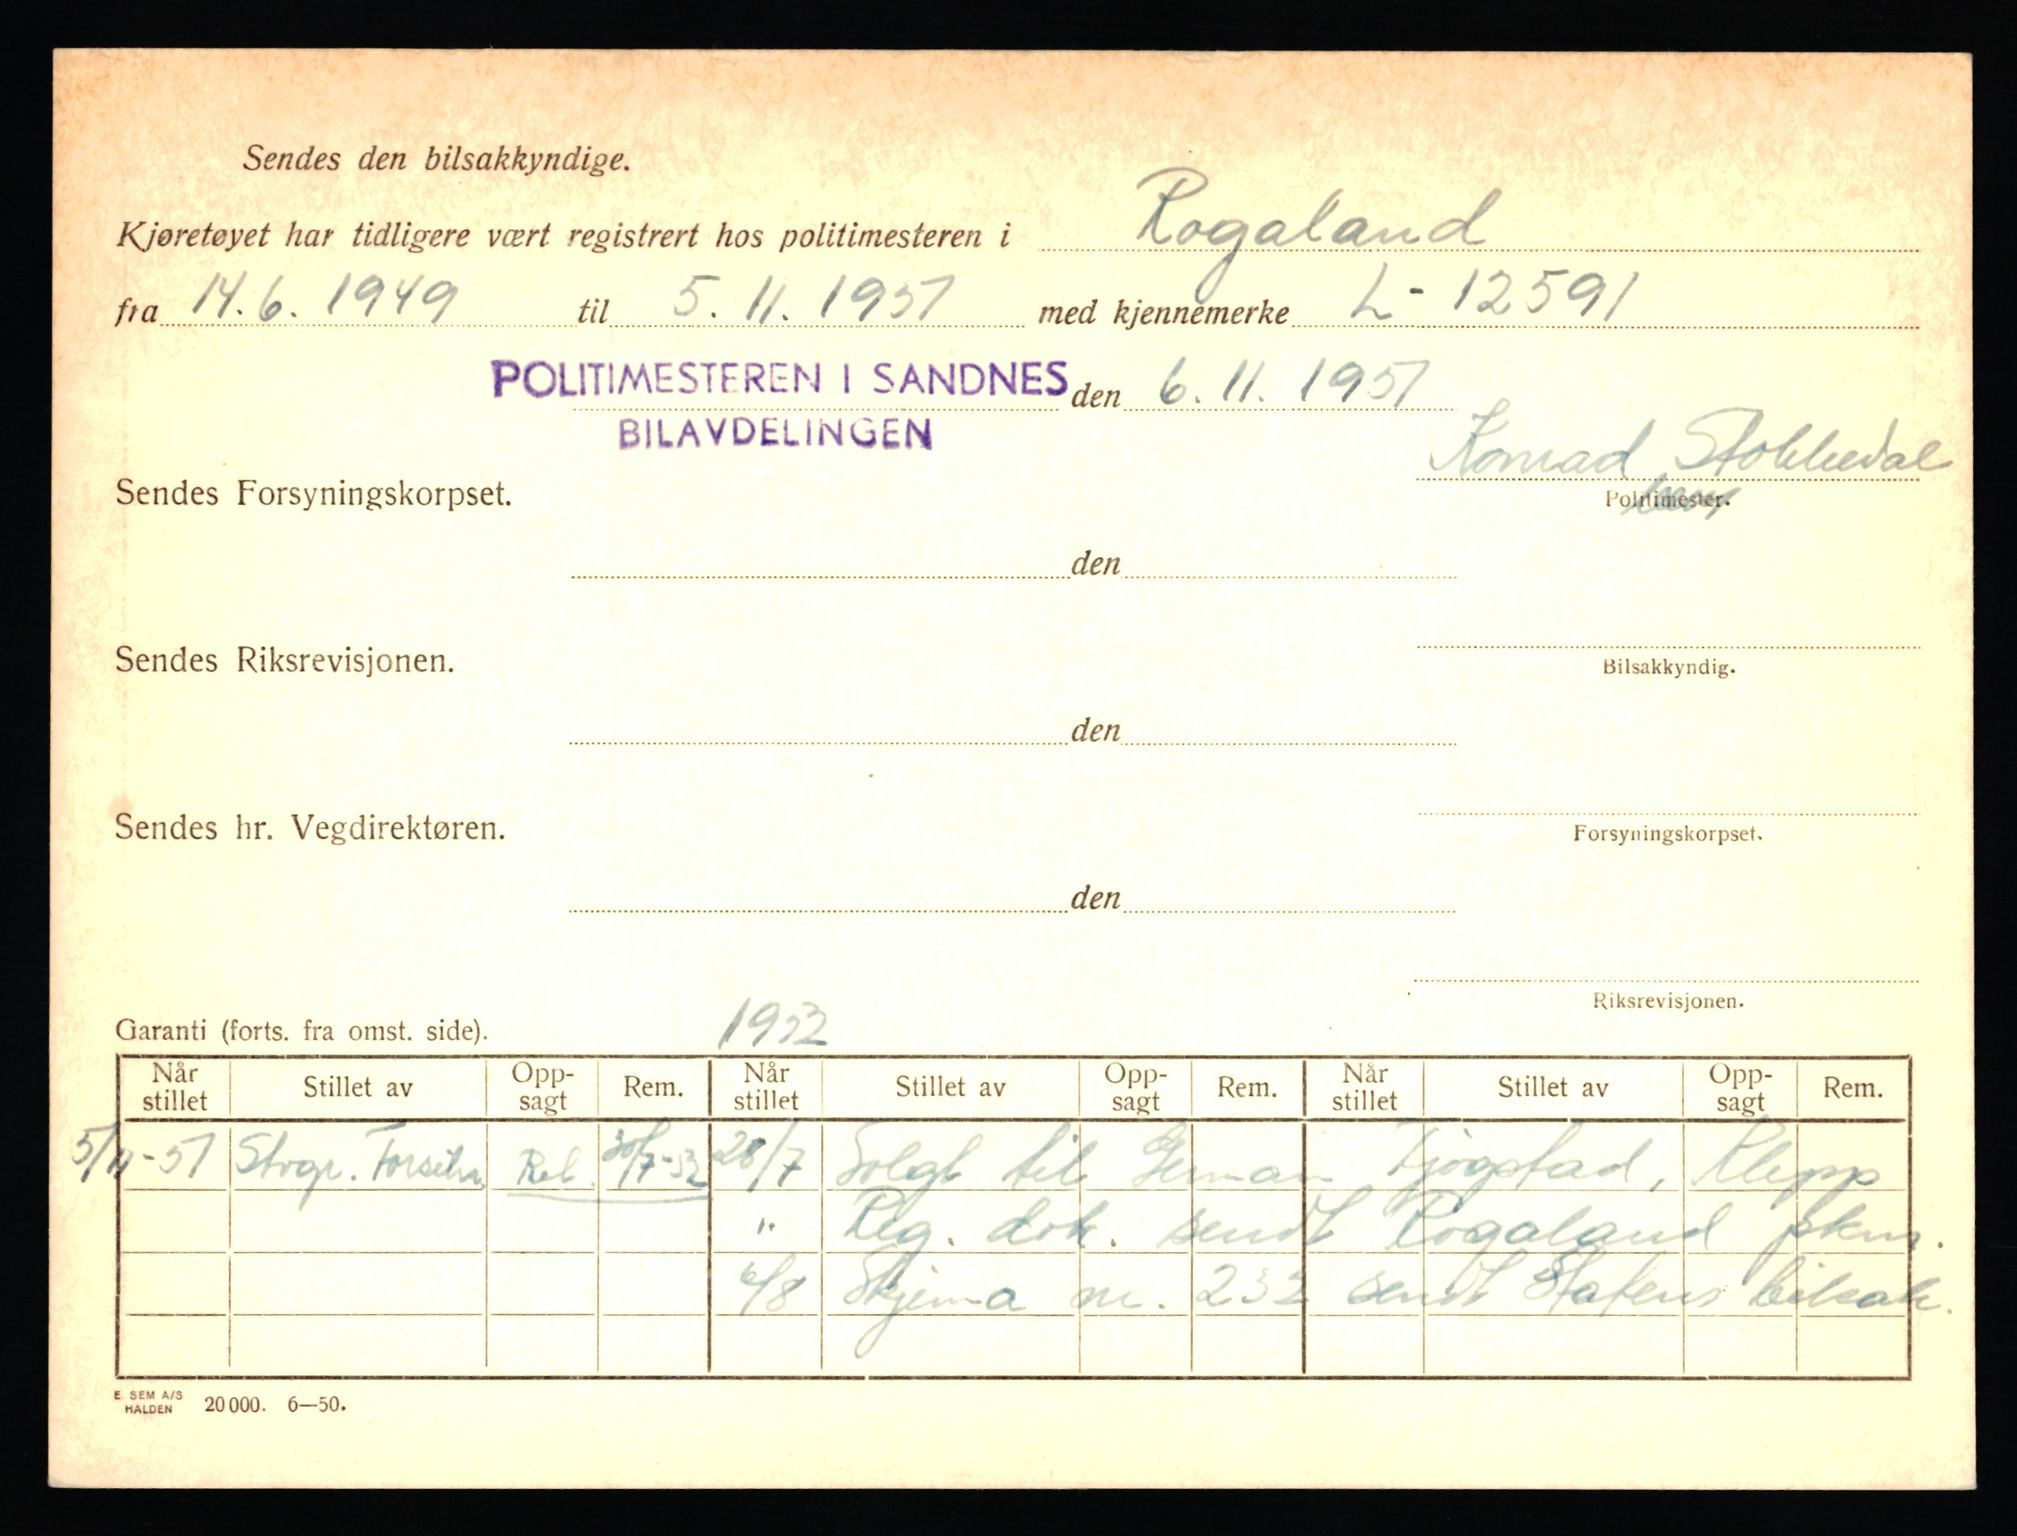 Sendes den bilsakkyndige.
Kjøretøyet har tidligere vært registrert hos politimesteren i Rogaland
fra 14.6.1949 til 5.11.1951 med kjennemerke L-12591
POLITIMESTEREN I SANDNES den 6.11.1951
BILAVDELINGEN
Konrad Stokkedal
Sendes Forsyningskorpset.
Politimester.
den
Sendes Riksrevisjonen.
Bilsakkyndig.
den
Sendes hr. Vegdirektøren.
Forsyningskorpset.
den
Riksrevisjonen.
Garanti (forts. fra omst. side). 1952
Når stillet Stillet av Opp-sagt Rem. Når stillet Stillet av Opp-sagt Rem. Når stillet Stillet av Opp-sagt Rem.
5/11-51 Stvgr. Rel. 30/7-52 28/7 Solgt til German Tjøgstad, Klepp
" Reg. dok. sendt Rogaland pkm.
6/8 Skjema nr. 232 sendt Statens bilsak.
E. SEM A/S
HALDEN 20000. 6—50.